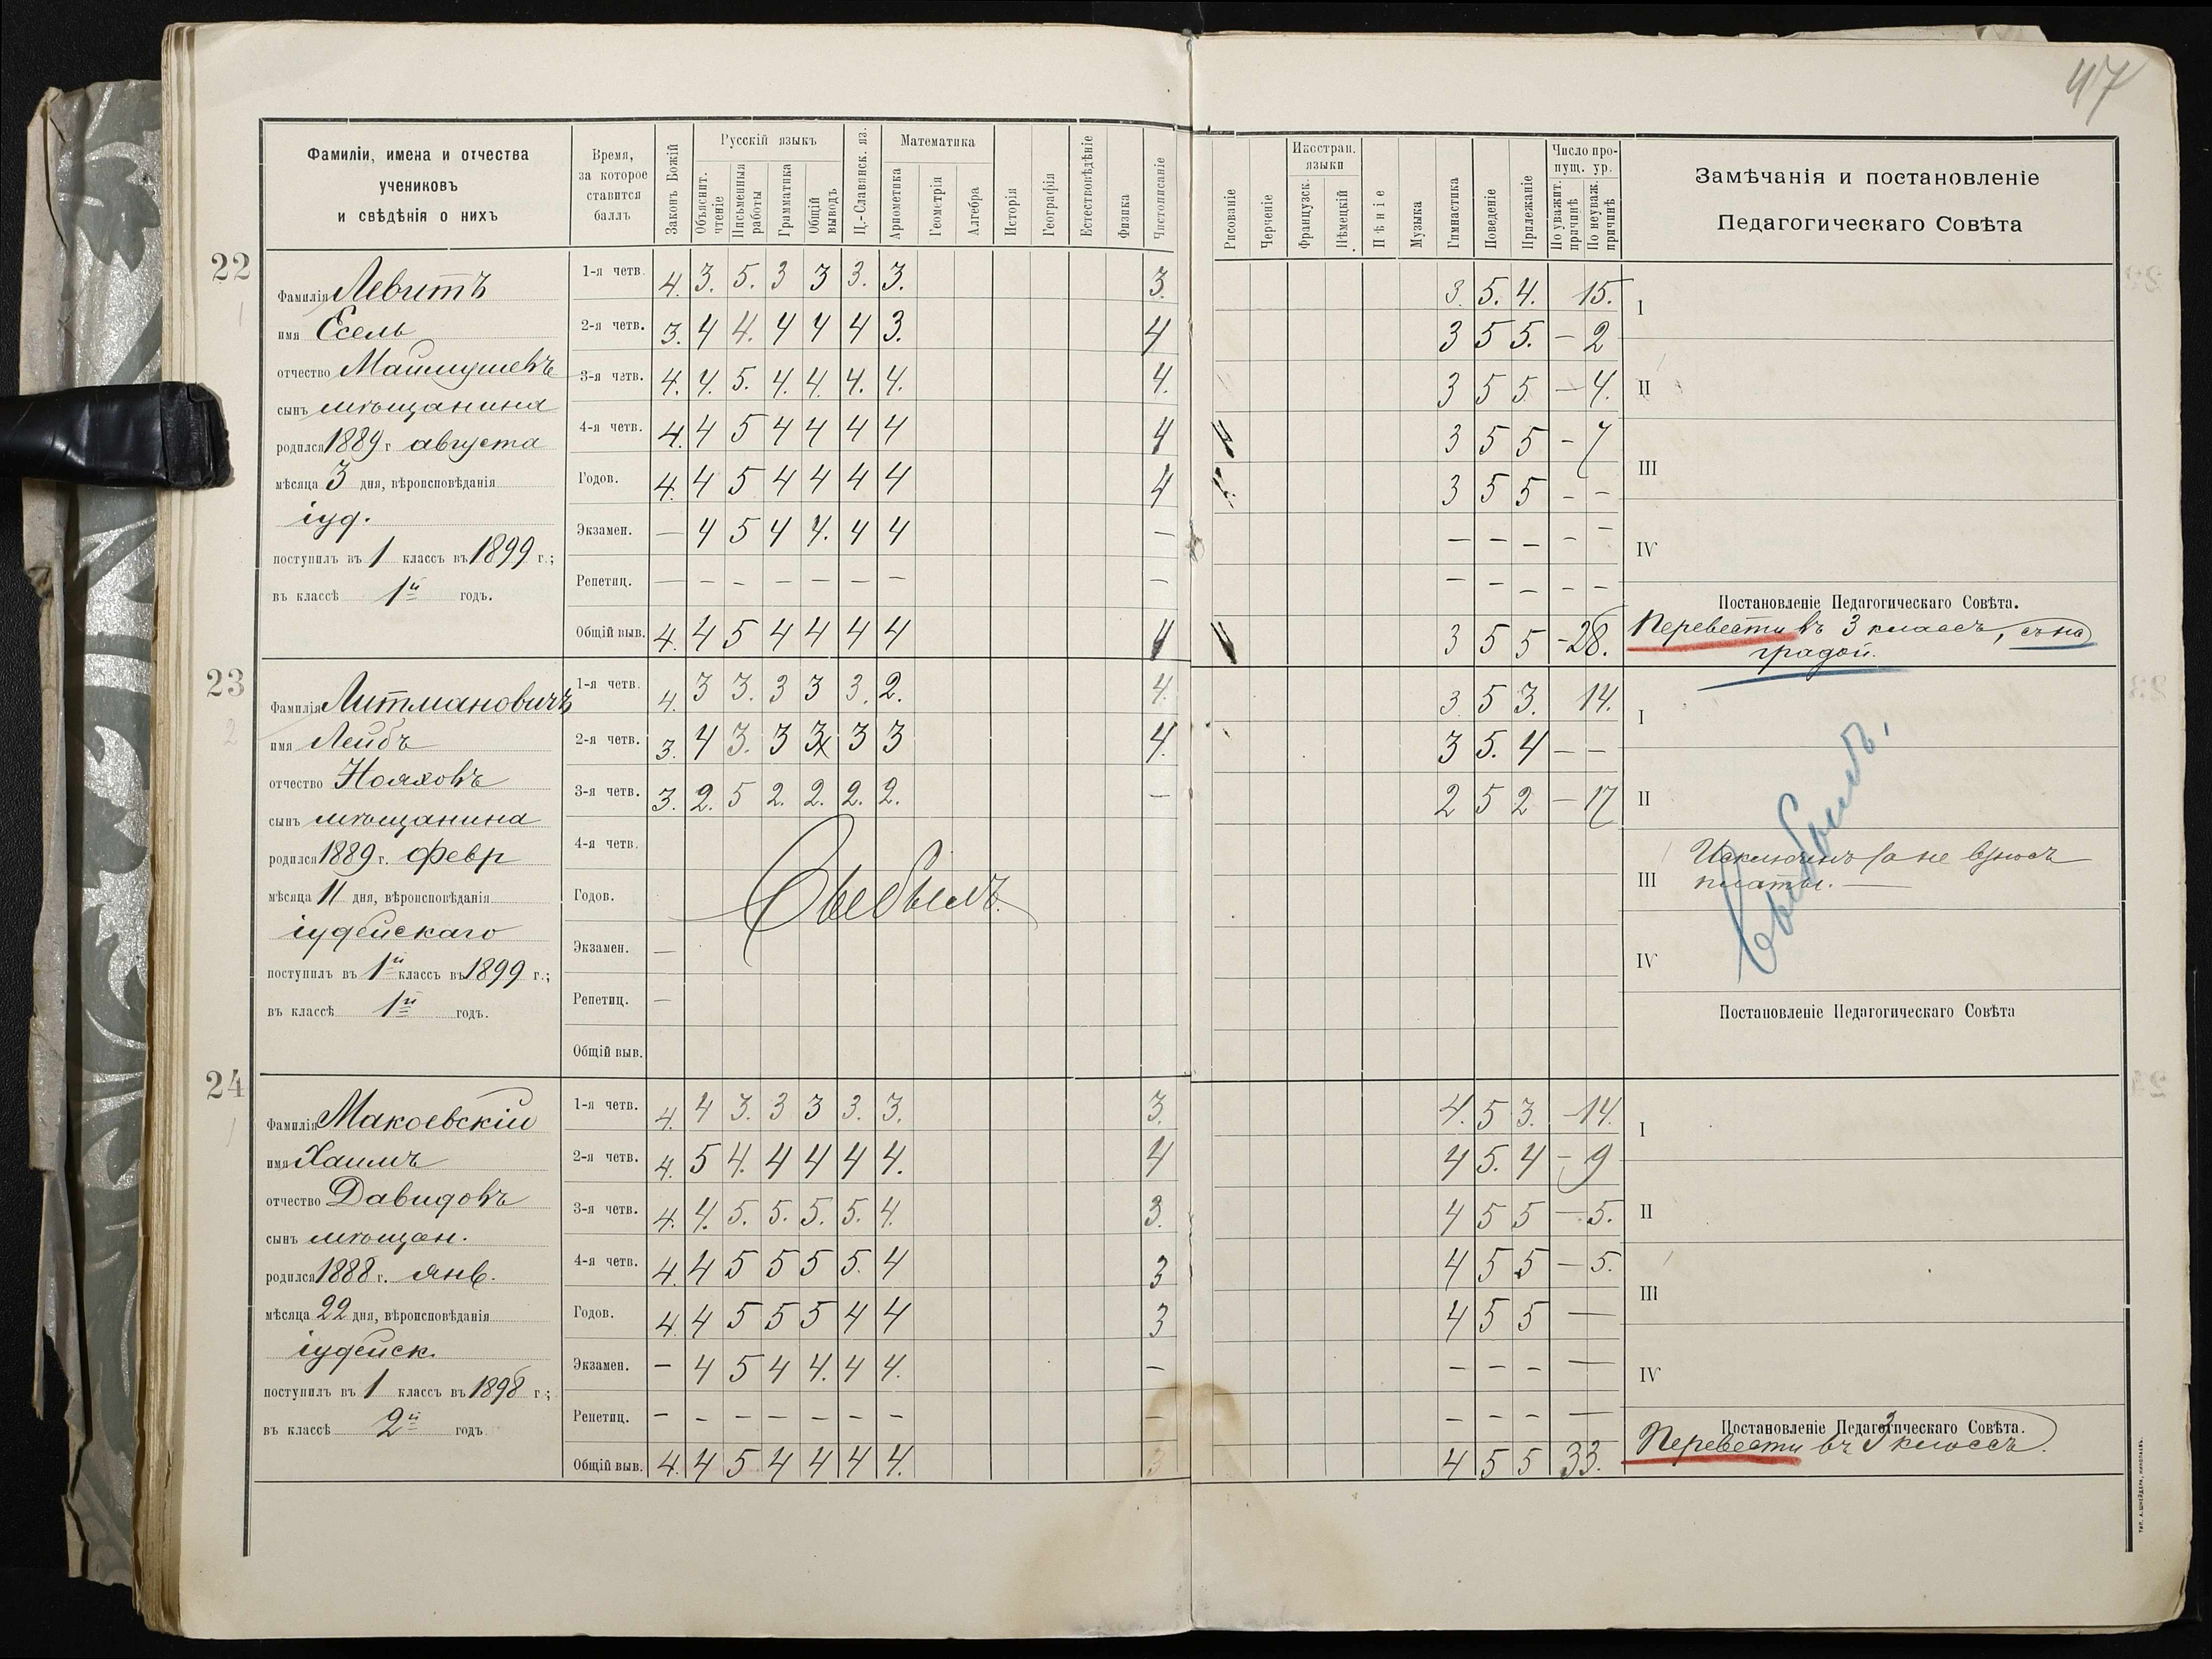 47
Фамиліи, имена и отчества
учениковъ
и свѣдѣнія о нихъ
Время,
за которое
ставится
баллъ
Законъ Божій
Русскій языкъ
Объяснит. чтеніе
Письменныя работы
Грамматика
Общій выводъ
Ц.-Славянск. яз.
Математика
Ариѳметика
Геометрія
Алгебра
Исторія
Географія
Естествовѣдѣніе
Физика
Чистописаніе
Рисованіе
Черченіе
Иностран. языки
Французск.
Нѣмецкій
Пѣніе
Музыка
Гимнастика
Поведеніе
Прилежаніе
Число пропущ. ур.
По уважит. причинѣ
По неуваж. причинѣ
Замѣчанія и постановленіе
Педагогическаго Совѣта
22
1
Фамилія Левитъ
имя Есель
отчество
сынъ мѣщанина
родился 1889 г. августа
мѣсяца 3 дня, вѣроисповѣданія
іуд.
поступилъ въ 1 классъ въ 1899 г.;
въ классѣ 1й годъ.
1-я четв. 4. 3. 5. 3 3 3. 3. 3. 3. 5. 4. 15. I
2-я четв. 3. 4 4. 4 4 4 3. 4 3 5 5. – 2
3-я четв. 4. 4. 5. 4. 4. 4. 4. 4. 3 5 5 – 4. II
4-я четв. 4. 4 5 4 4 4 4 4 3 5 5 – 7
Годов. 4. 4 5 4 4 4 4 4 3 5 5 – – III
Экзамен. – 4 5 4 4. 4 4 – – – – – –
Репетиц. – – – – – – – – – – – – – IV
Общій выв. 4. 4 5 4 4 4 4 4 3 5 5 – 28.
Постановленіе Педагогическаго Совѣта.
Перевести въ 3 классъ, съ на
градой.
23
2
Фамилія Литмановичъ
имя Лейбъ
отчество Нояховъ
сынъ мѣщанина
родился 1889 г. февр
мѣсяца 11 дня, вѣроисповѣданія
іудейскаго
поступилъ въ 1й классъ въ 1899 г.;
въ классѣ 1й годъ.
1-я четв. 4. 3 3. 3 3 3. 2. 4. 3 5 3. 14. I
2-я четв. 3. 4 3. 3 3 3 3 4. 3 5. 4 – –
3-я четв. 3. 2. 5 2. 2. 2. 2. – 2 5 2 – 17 II
4-я четв.
Годов. III
Экзамен. –
Репетиц. – IV
Общій выв.
Выбылъ.
Выбылъ.
Исключенъ за не взносъ
платы. –
Постановленіе Педагогическаго Совѣта
24
1
Фамилія Макоевскій
имя Хаимъ
отчество Давидовъ
сынъ мѣщан.
родился 1888 г. янв.
мѣсяца 22 дня, вѣроисповѣданія
іудейск.
поступилъ въ 1 классъ въ 1898 г.;
въ классѣ 2й годъ
1-я четв. 4. 4 3. 3 3 3. 3. 3. 4. 5 3. – 14. I
2-я четв. 4. 5 4. 4 4 4 4. 4 4 5. 4 – 9
3-я четв. 4. 4. 5. 5. 5. 5. 4. 3. 4 5 5 – 5. II
4-я четв. 4. 4 5 5 5 5. 4 3 4 5 5 – 5.
Годов. 4. 4 5 5 5 4 4 3 4 5 5 – III
Экзамен. – 4 5 4 4. 4 4. – – – – –
Репетиц. – – – – – – – – – – – – IV
Общій выв. 4. 4 5 4 4 4 4. 3 4 5 5 33.
Постановленіе Педагогическаго Совѣта.
Перевести въ 3 классъ.